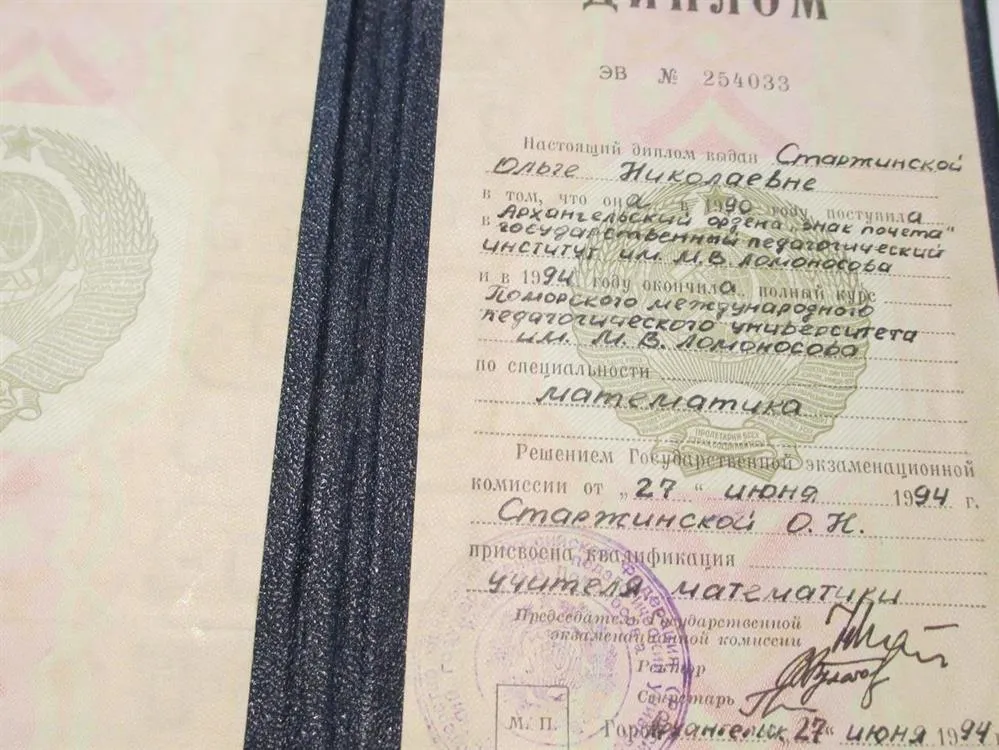 ДИПЛОМ
ЭВ № 254033
Настоящий диплом выдан Старжинской
Ольге Николаевне
в том, что она в 1990 году поступила
в Архангельский ордена „знак почета"
государственный педагогический
институт им. М.В. Ломоносова
и в 1994 году окончила полный курс
Поморского международного
педагогического университета
им. М. В. Ломоносова
по специальности
математика
ПРОЛЕТАРИИ ВСЕХ
СТРАН СОЕДИНЯЙТЕСЬ
Решением Государственной экзаменационной
комиссии от „27" июня 1994 г.
Старжинской О. Н.
присвоена квалификация
учителя математики
Председатель Государственной
экзаменационной комиссии
Ректор
Секретарь
М. П.
Город Архангельск „27" июня 1994